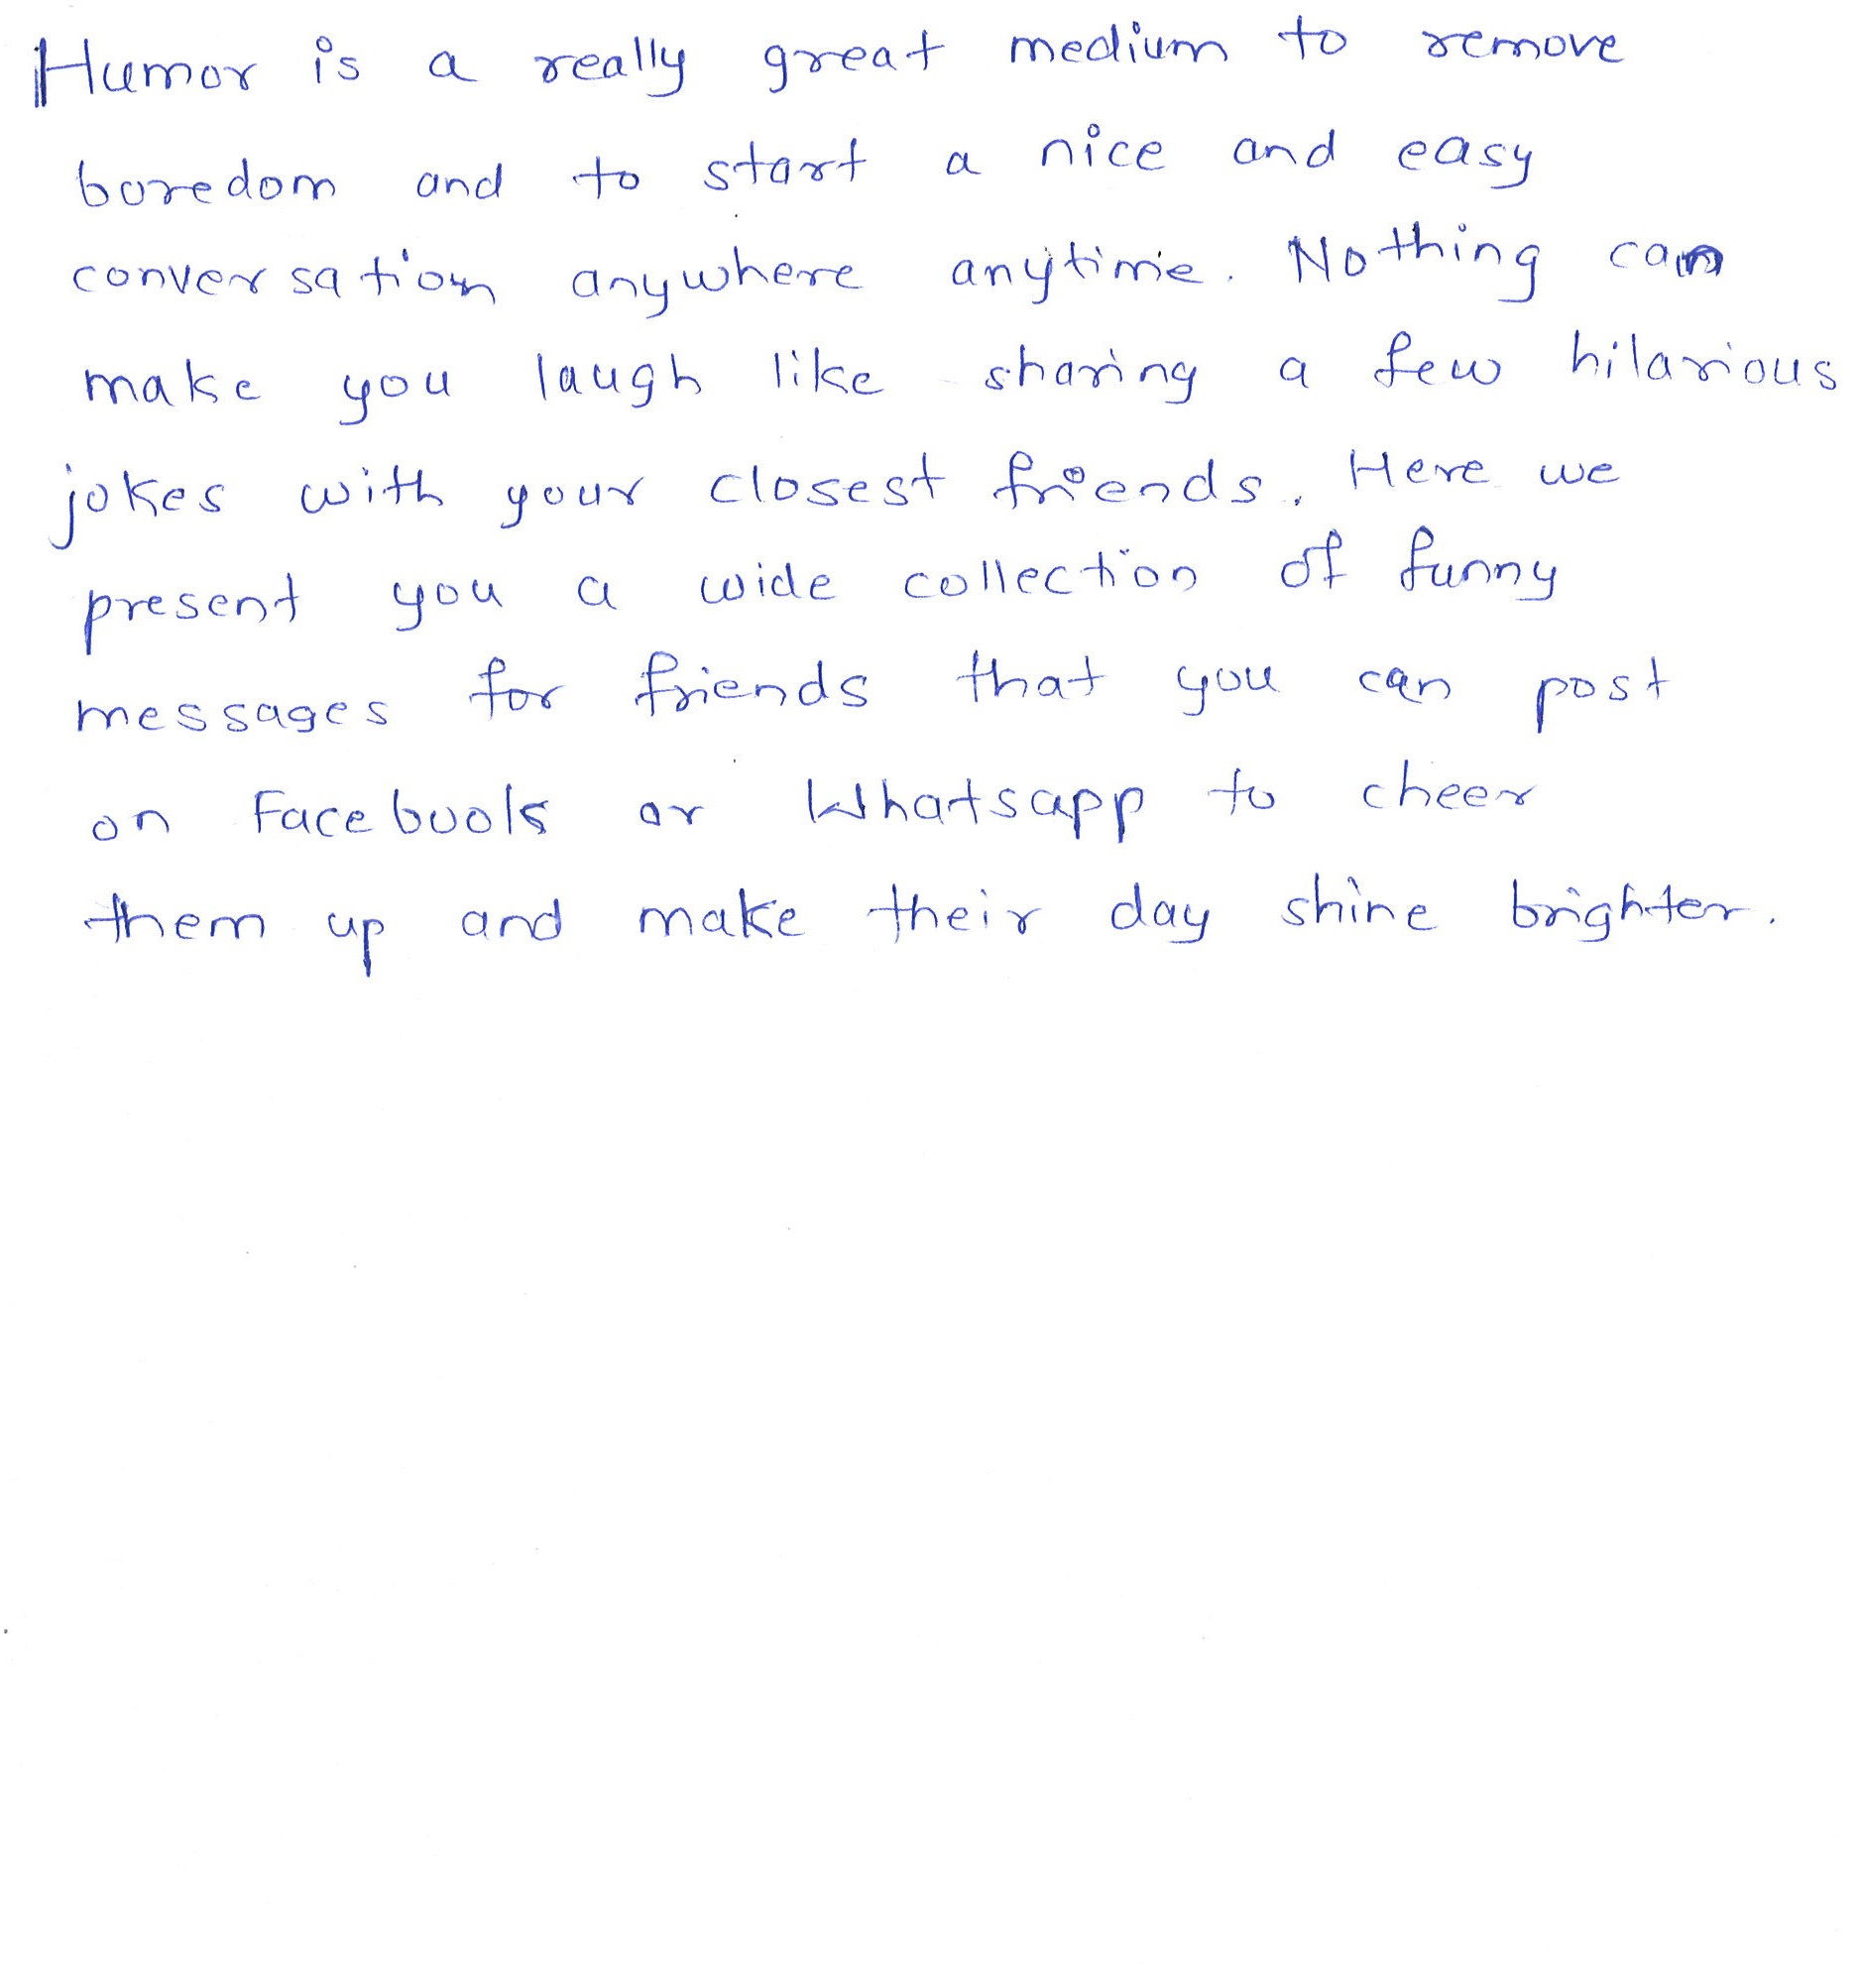 Humor is a really great medium to remove
boredom and to start a nice and easy
conversation anywhere anytime. Nothing can
make you laugh like sharing a few hilarious
jokes with your closest friends. Here we
present you a wide collection of funny
messages for friends that you can post
on Facebook or Whatsapp to cheer
them up and make their day shine brighter.